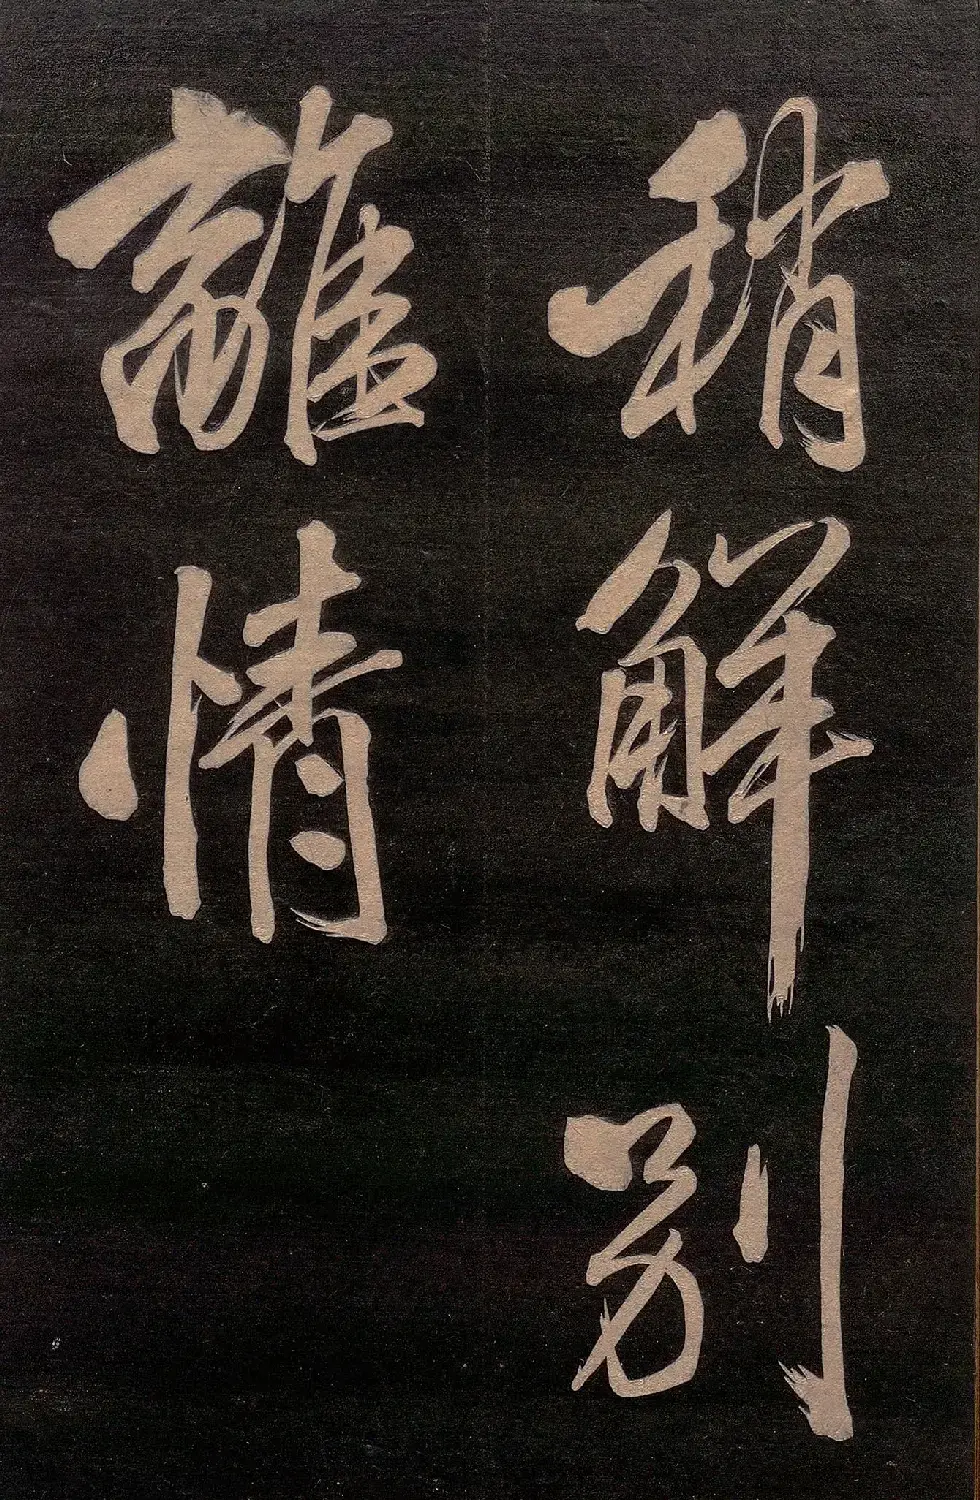 稍解别
離情